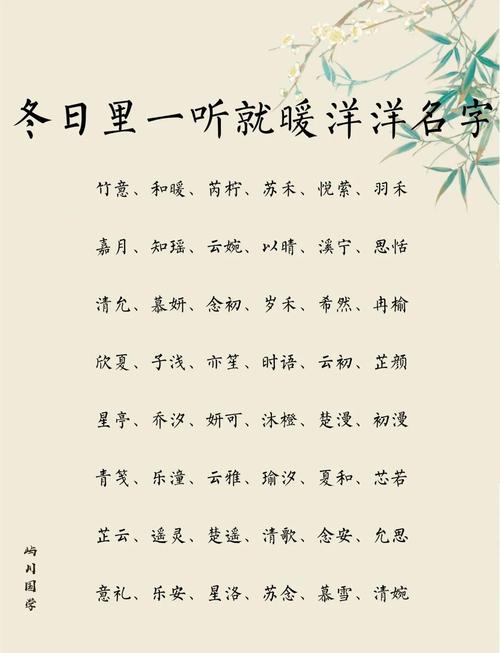 冬日里一听就暖洋洋名字
竹意、和暖、芮柠、苏禾、悦萦、羽禾
嘉月、知瑶、云婉、以晴、溪宁、思恬
清允、慕妍、念初、岁禾、希然、冉榆
欣夏、子浅、亦笙、时语、云初、芷颜
星亭、乔汐、妍可、沐橙、楚漫、初漫
青笺、乐潼、云雅、瑜汐、夏和、芯若
芷云、遥灵、楚遥、清歌、念安、允思
意礼、乐安、星洛、苏念、慕雪、清婉
屿川国学